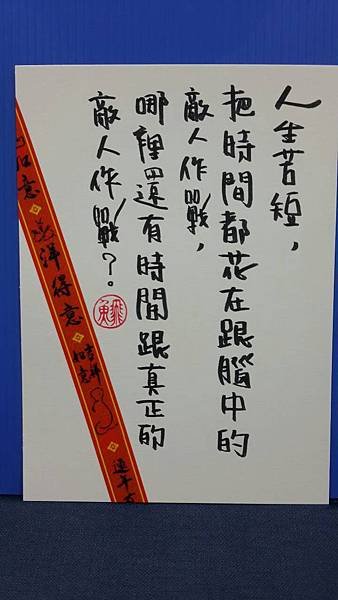 人生苦短，
把時間都花在跟腦中的
敵人作戰，
哪裡還有時間跟真正的
敵人作戰？。
如意
洋洋得意
吉祥
如意
連年有